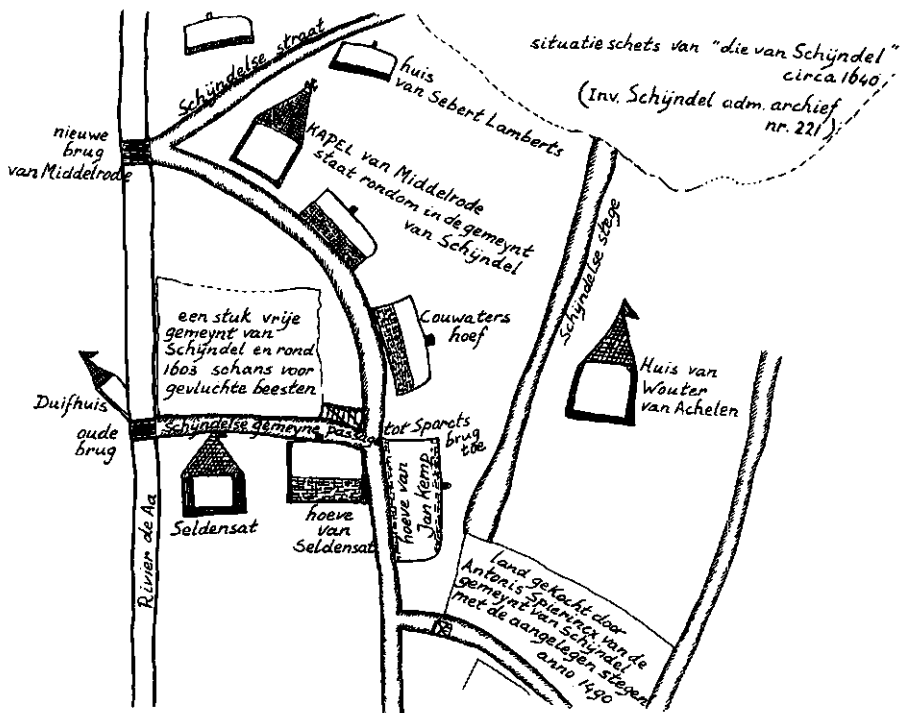 situatie schets van "die van Schijndel"
circa 1640,
(Inv. Schijndel adm. archief
nr. 221)
Schijndelse straat
huis
van Sebert Lamberts
nieuwe
brug
van Middelrode
KAPEL van Middelrode
staat rondom in de gemeynt
van Schijndel
Schijndelse stege
een stuk vrije
gemeynt van
Schijndel en rond
1603 schans voor
gevluchte beesten
Couwaters
hoef
Huis van
Wouter
van Achelen
Duifhuis
oude
brug
Schijndelse gemeyne passage tot Sparcts
brug
toe
Seldensat
hoeve
van
Seldensat
hoeve van
Jan Kemp
Rivier de Aa
land gekocht door
Antonis Spierincx van de
gemeynt van Schijndel
met de aangelegen stegen
anno 1490